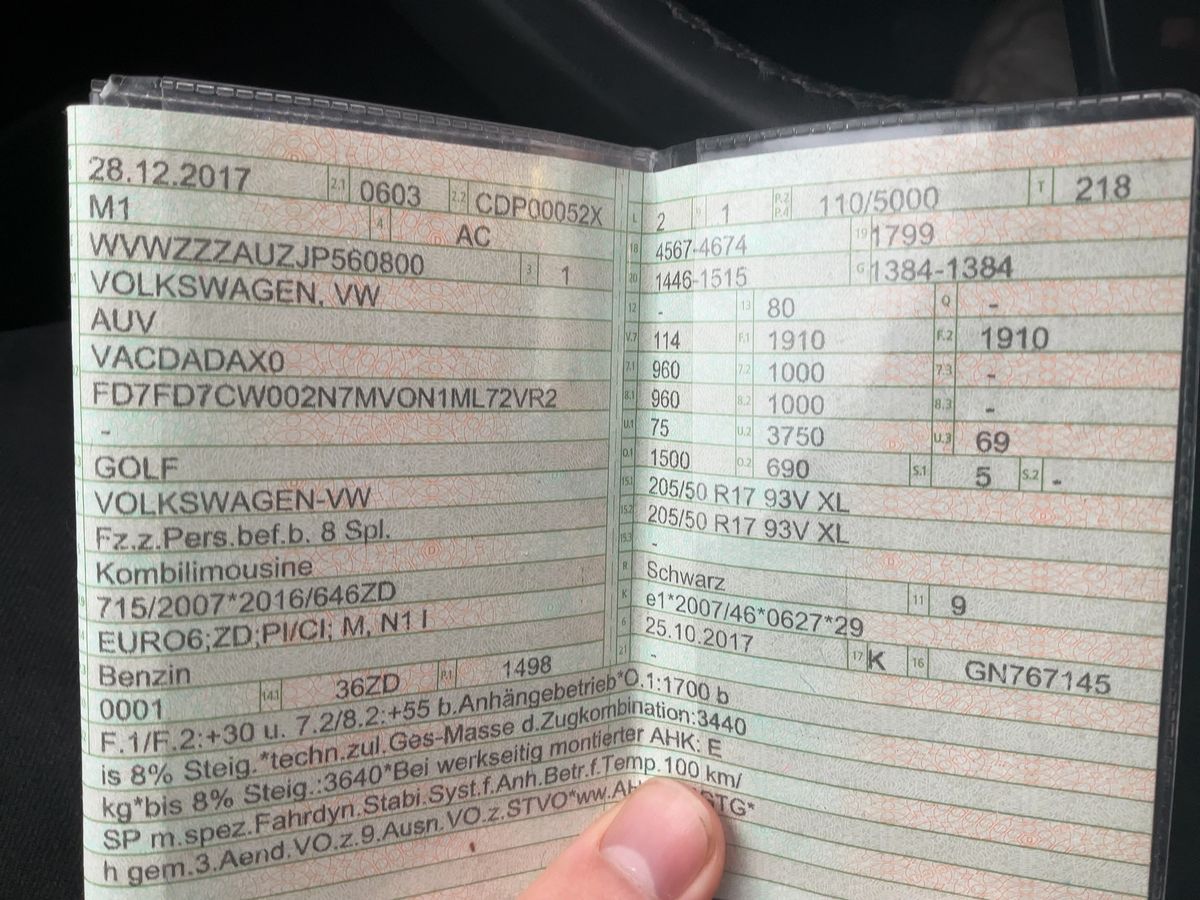 28.12.2017 2.1 0603 2.2 CDP00052X
M1 4 AC
WVWZZZAUZJP560800 3 1
VOLKSWAGEN, VW
AUV
VACDADAX0
FD7FD7CW002N7MVON1ML72VR2
-
GOLF
VOLKSWAGEN-VW
Fz.z.Pers.bef.b. 8 Spl.
Kombilimousine
715/2007*2016/646ZD
EURO6;ZD;PI/CI; M, N1 I
Benzin P.1 1498
0001 14.1 36ZD
L 2 9 1 P.2 P.4 110/5000 T 218
18 4567-4674 19 1799
20 1446-1515 G 1384-1384
12 - 13 80 Q -
V.7 114 F.1 1910 F.2 1910
7.1 960 7.2 1000 7.3 -
8.1 960 8.2 1000 8.3 -
U.1 75 U.2 3750 U.3 69
O.1 1500 O.2 690 S.1 5 S.2 -
15.1 205/50 R17 93V XL
15.2 205/50 R17 93V XL
15.3 -
R Schwarz 11 9
K e1*2007/46*0627*29
6 25.10.2017 17 K 16 GN767145
21 -
F.1/F.2:+30 u. 7.2/8.2:+55 b.Anhängebetrieb*O.1:1700 b
is 8% Steig.*techn.zul.Ges-Masse d.Zugkombination:3440
kg*bis 8% Steig.:3640*Bei werkseitig montierter AHK: E
SP m.spez.Fahrdyn.Stabi.Syst.f.Anh.Betr.f.Temp.100 km/
h gem.3.Aend.VO.z.9.Ausn.VO.z.STVO*ww.